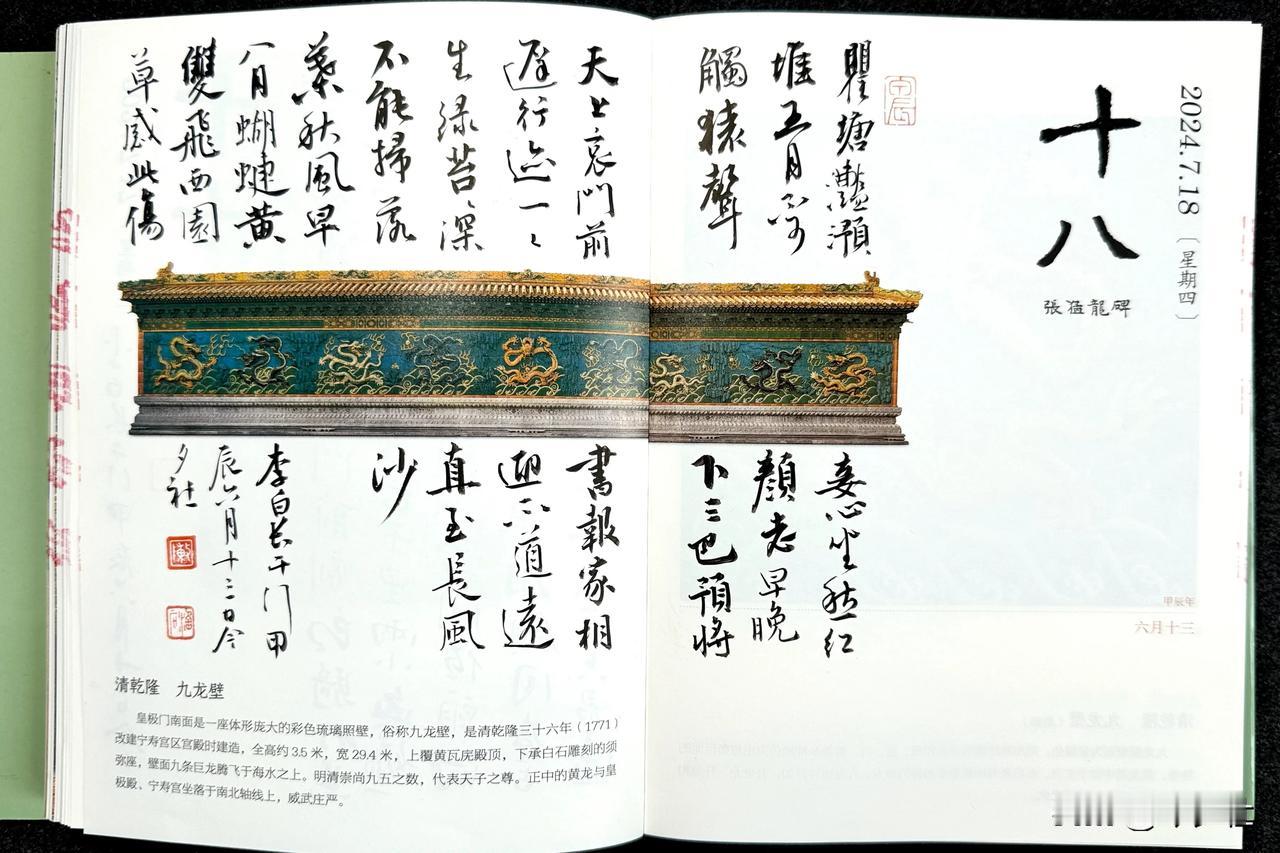 2024.7.18〔星期四〕
十八
張猛龍碑
甲辰年
六月十三
瞿塘灩澦
堆五月不可
觸猿聲
天上哀門前
遲行迹一〻
生绿苔〻深
不能掃落
葉秋風早
八月蝴蝶黄
雙飛西園
草感此傷
妾心坐愁红
顏老早晚
下三巴預將
書報家相
迎不道遠
直至長風
沙
李白长干行甲
辰六月十三日今
夕社
清乾隆　九龙壁
皇极门南面是一座体形庞大的彩色琉璃照壁，俗称九龙壁，是清乾隆三十六年（1771）
改建宁寿宫区宫殿时建造，全高约3.5米，宽29.4米，上覆黄瓦庑殿顶，下承白石雕刻的须
弥座，壁面九条巨龙腾飞于海水之上。明清崇尚九五之数，代表天子之尊。正中的黄龙与皇
极殿、宁寿宫坐落于南北轴线上，威武庄严。